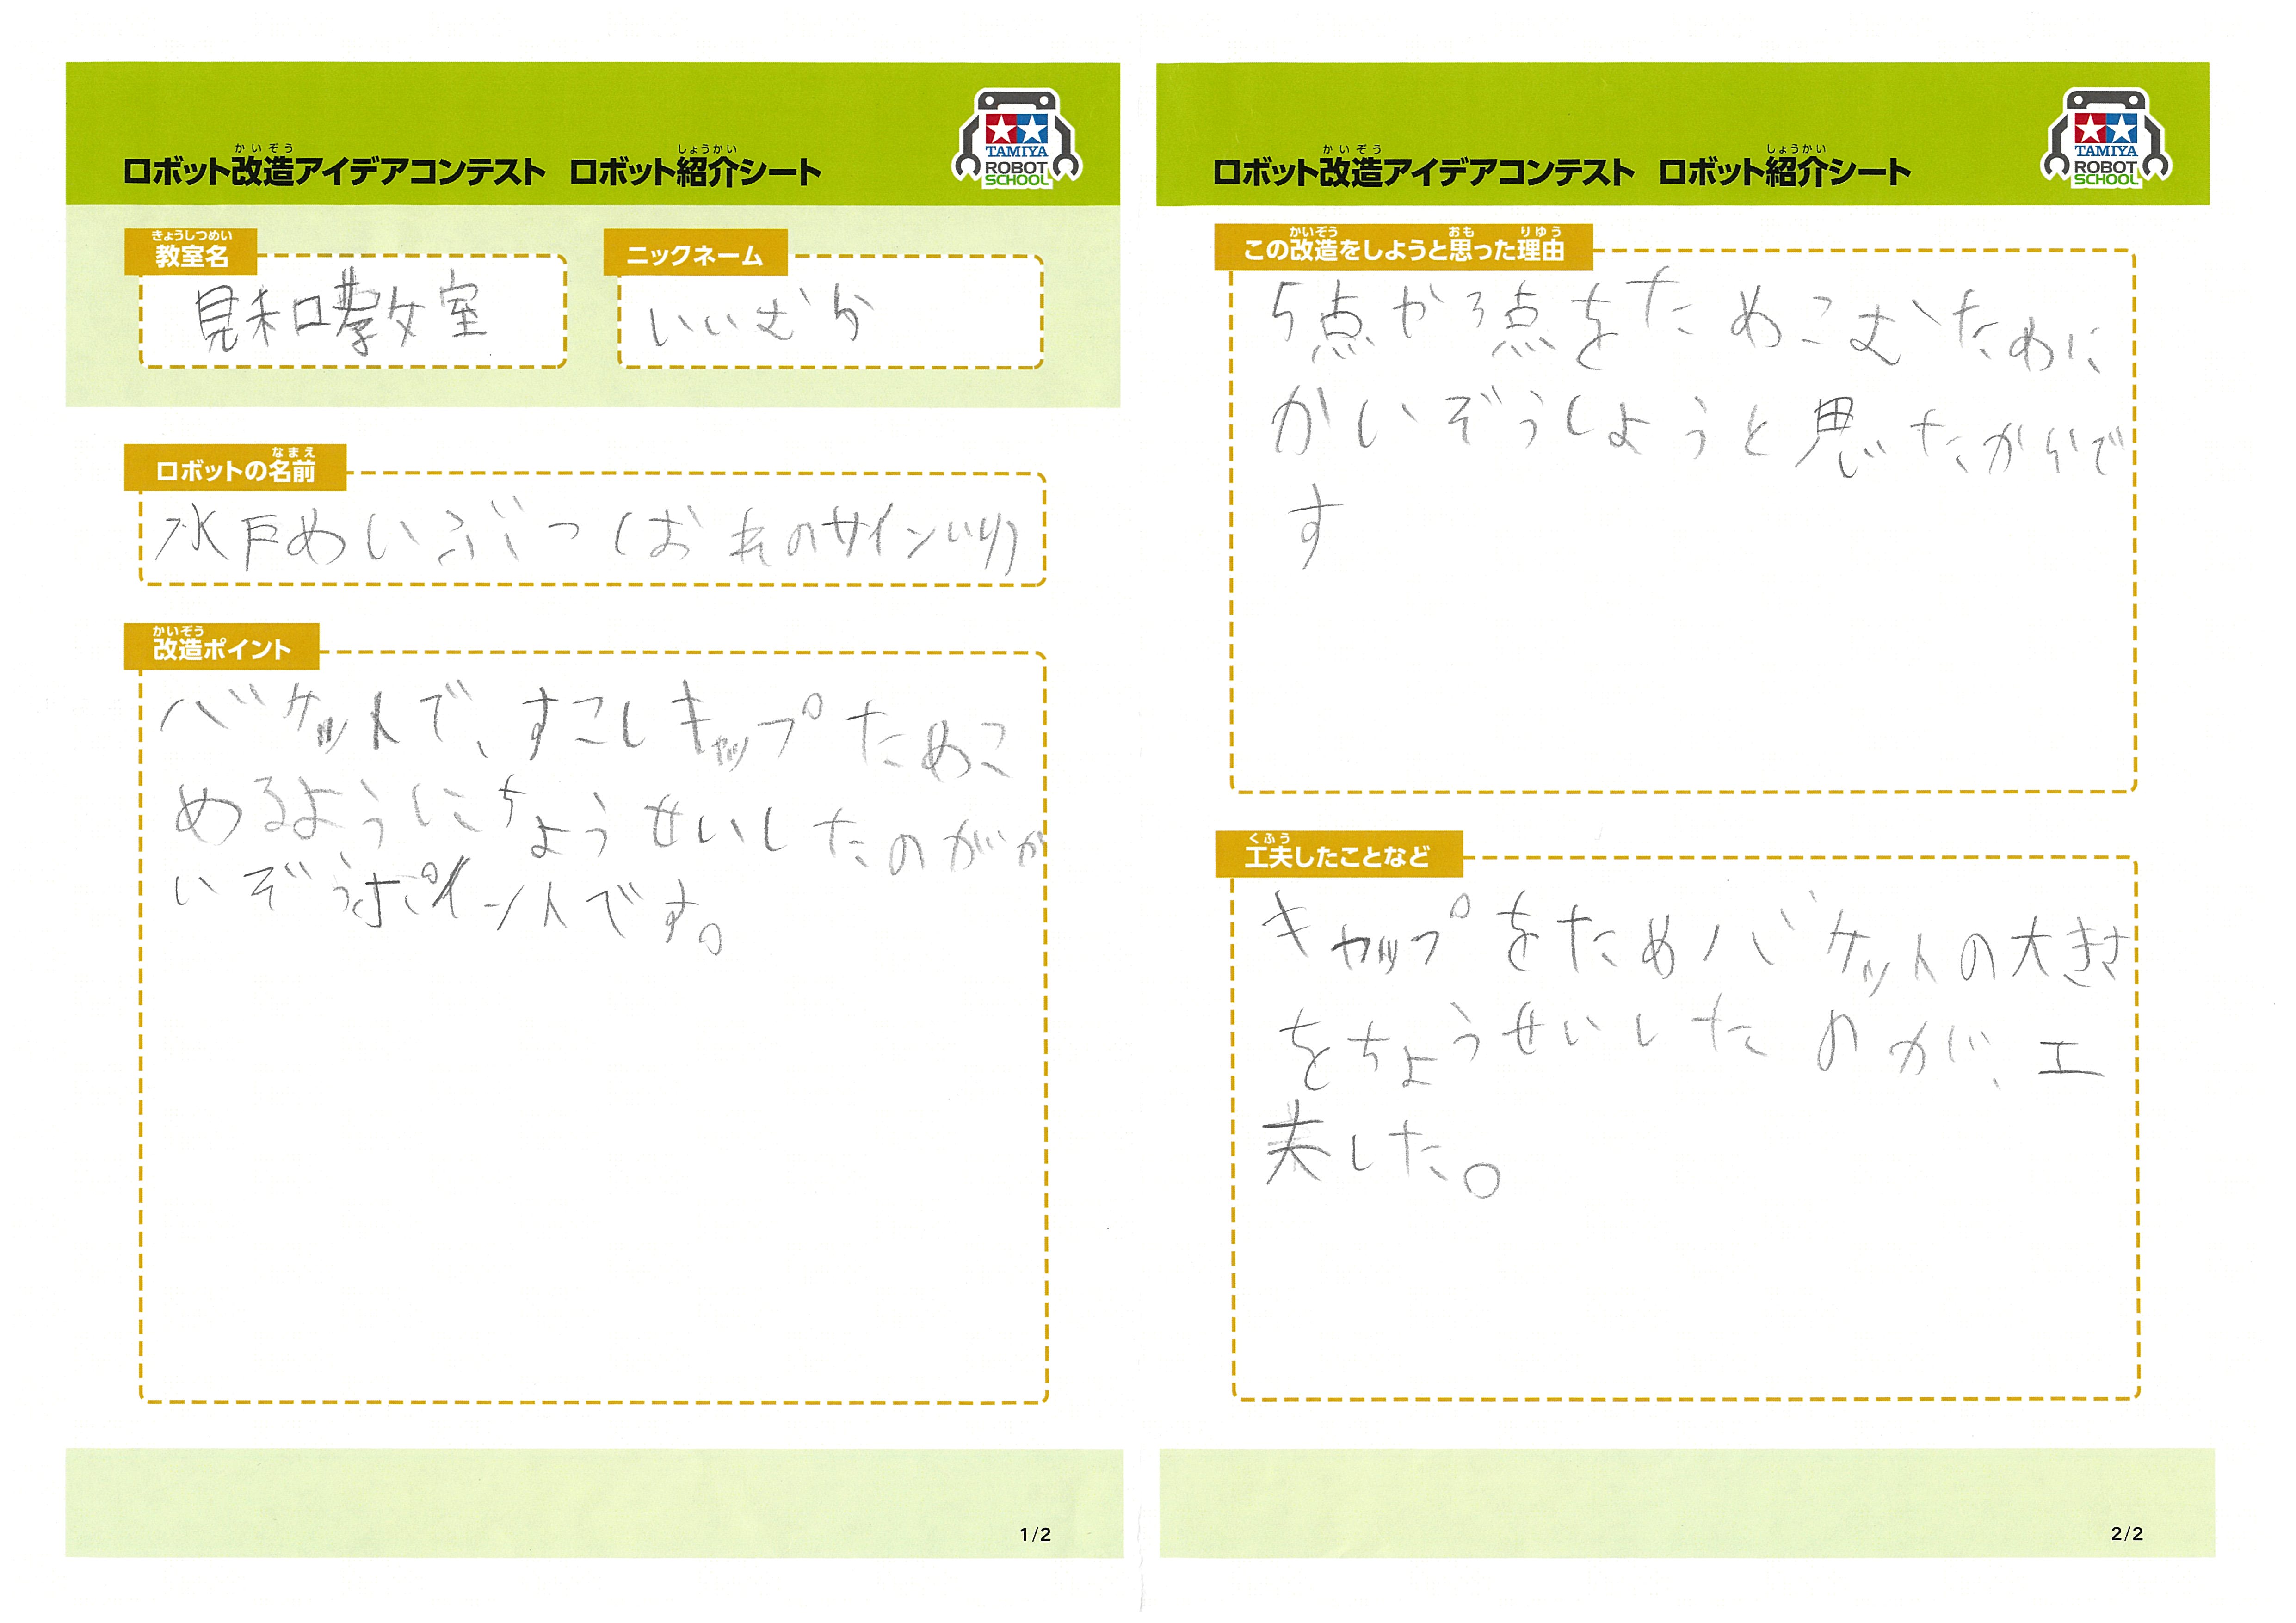 ロボット改造アイデアコンテスト ロボット紹介シート
かいぞう しょうかい
TAMIYA
ROBOT
SCHOOL
きょうしつめい
教室名
見和教室
ニックネーム
いいむら
なまえ
ロボットの名前
水戸めいぶつ(おれのサインいり)
かいぞう
改造ポイント
バケットで、すこしキャップためこ
めるようにちょうせいしたのがか
いぞうポイントです。
1/2
ロボット改造アイデアコンテスト ロボット紹介シート
かいぞう しょうかい
TAMIYA
ROBOT
SCHOOL
かいぞう おも りゆう
この改造をしようと思った理由
5点や3点をためこむために
かいぞうしようと思いたからで
す
くふう
工夫したことなど
キャップをためバケットの大きさ
をちょうせいしたのが、工
夫した。
2/2